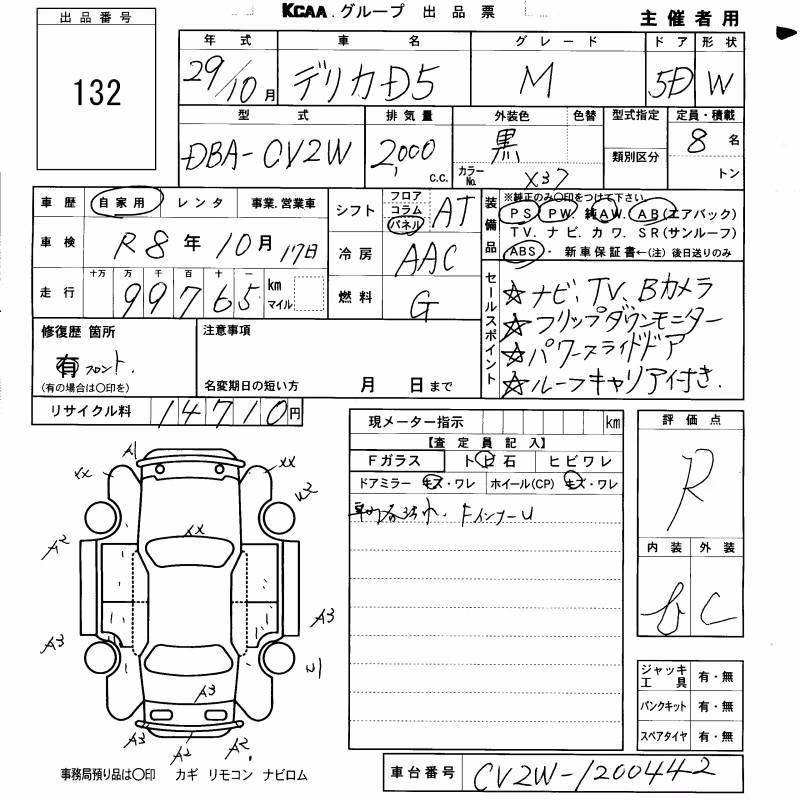 KCAA グループ 出品票
主催者用
出品番号
132
年式
29/10月
車名
デリカD5
グレード
M
ドア
5D
形状
W
型式
DBA-CV2W
排気量
2,000 c.c.
外装色
黒
色替
カラーNo.
X37
型式指定
類別区分
定員・積載
8名
トン
車歴
自家用
レンタ
事業.営業車
車検
R8年10月17日
走行
十万 万 千 百 十 一
99765
km
マイル
シフト
フロア
コラム
パネル
AT
冷房
AAC
燃料
G
装備品
※純正のみ○印をつけて下さい。
PS PW. 純AW. AB(エアバック)
TV. ナビ. カワ. SR(サンルーフ)
ABS・ 新車保証書←(注)後日送りのみ
セールスポイント
☆ナビ、TV、Bカメラ
☆フリップダウンモニター
☆パワースライドドア
☆ルーフキャリア付き.
修復歴 箇所
有 フロント.
(有の場合は○印を)
注意事項
名変期日の短い方 月 日まで
リサイクル料
14710円
現メーター指示
km
【査定員記入】
Fガラス
トビ石
ヒビワレ
ドアミラー キズ・ワレ
ホイール(CP) キズ・ワレ
FインナーU
評価点
R
内装
外装
C
A1
XX
XX
W3
XX
A2
A3
A3
U1
A3
A3
A2
A2
ジャッキ工具 有・無
パンクキット 有・無
スペアタイヤ 有・無
事務局預り品は○印 カギ リモコン ナビロム
車台番号
CV2W-1200442